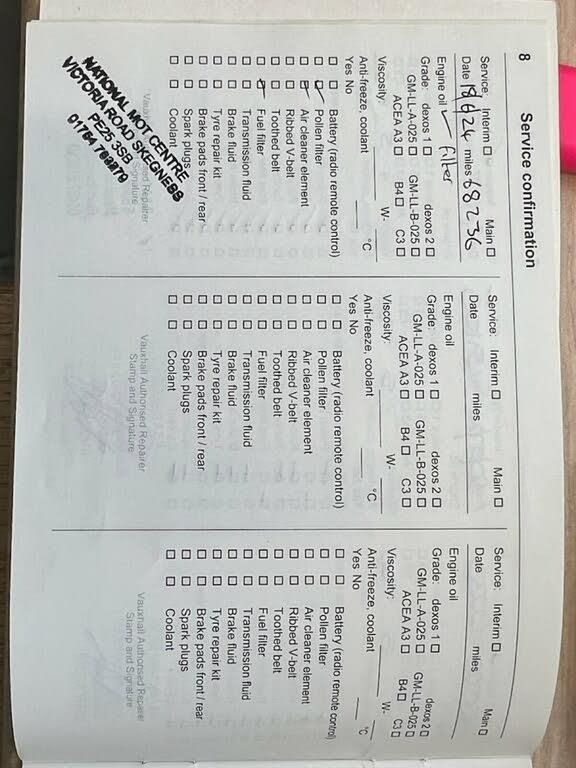 8
Service confirmation
Service: Interim □ Main □
Date 18/6/24 miles 68236
Engine oil ✓ filter
Grade: dexos 1 □ dexos 2 □
GM-LL-A-025 □ GM-LL-B-025 □
ACEA A3 □ B4 □ C3 □
Viscosity: W-
Anti-freeze, coolant °C
Yes No
□ □ Battery (radio remote control)
□ ✓ Pollen filter
□ ✓ Air cleaner element
□ □ Ribbed V-belt
□ □ Toothed belt
□ ✓ Fuel filter
□ □ Transmission fluid
□ □ Brake fluid
□ □ Tyre repair kit
□ □ Brake pads front / rear
□ □ Spark plugs
□ □ Coolant
NATIONAL MOT CENTRE
VICTORIA ROAD SKEGNESS
PE25 3SB
Service: Interim □ Main □
Date miles
Engine oil
Grade: dexos 1 □ dexos 2 □
GM-LL-A-025 □ GM-LL-B-025 □
ACEA A3 □ B4 □ C3 □
Viscosity: W-
Anti-freeze, coolant °C
Yes No
□ □ Battery (radio remote control)
□ □ Pollen filter
□ □ Air cleaner element
□ □ Ribbed V-belt
□ □ Toothed belt
□ □ Fuel filter
□ □ Transmission fluid
□ □ Brake fluid
□ □ Tyre repair kit
□ □ Brake pads front / rear
□ □ Spark plugs
□ □ Coolant
Vauxhall Authorised Repairer
Stamp and Signature
Service: Interim □ Main □
Date miles
Engine oil
Grade: dexos 1 □ dexos 2 □
GM-LL-A-025 □ GM-LL-B-025 □
ACEA A3 □ B4 □ C3 □
Viscosity: W-
Anti-freeze, coolant °C
Yes No
□ □ Battery (radio remote control)
□ □ Pollen filter
□ □ Air cleaner element
□ □ Ribbed V-belt
□ □ Toothed belt
□ □ Fuel filter
□ □ Transmission fluid
□ □ Brake fluid
□ □ Tyre repair kit
□ □ Brake pads front / rear
□ □ Spark plugs
□ □ Coolant
Vauxhall Authorised Repairer
Stamp and Signature